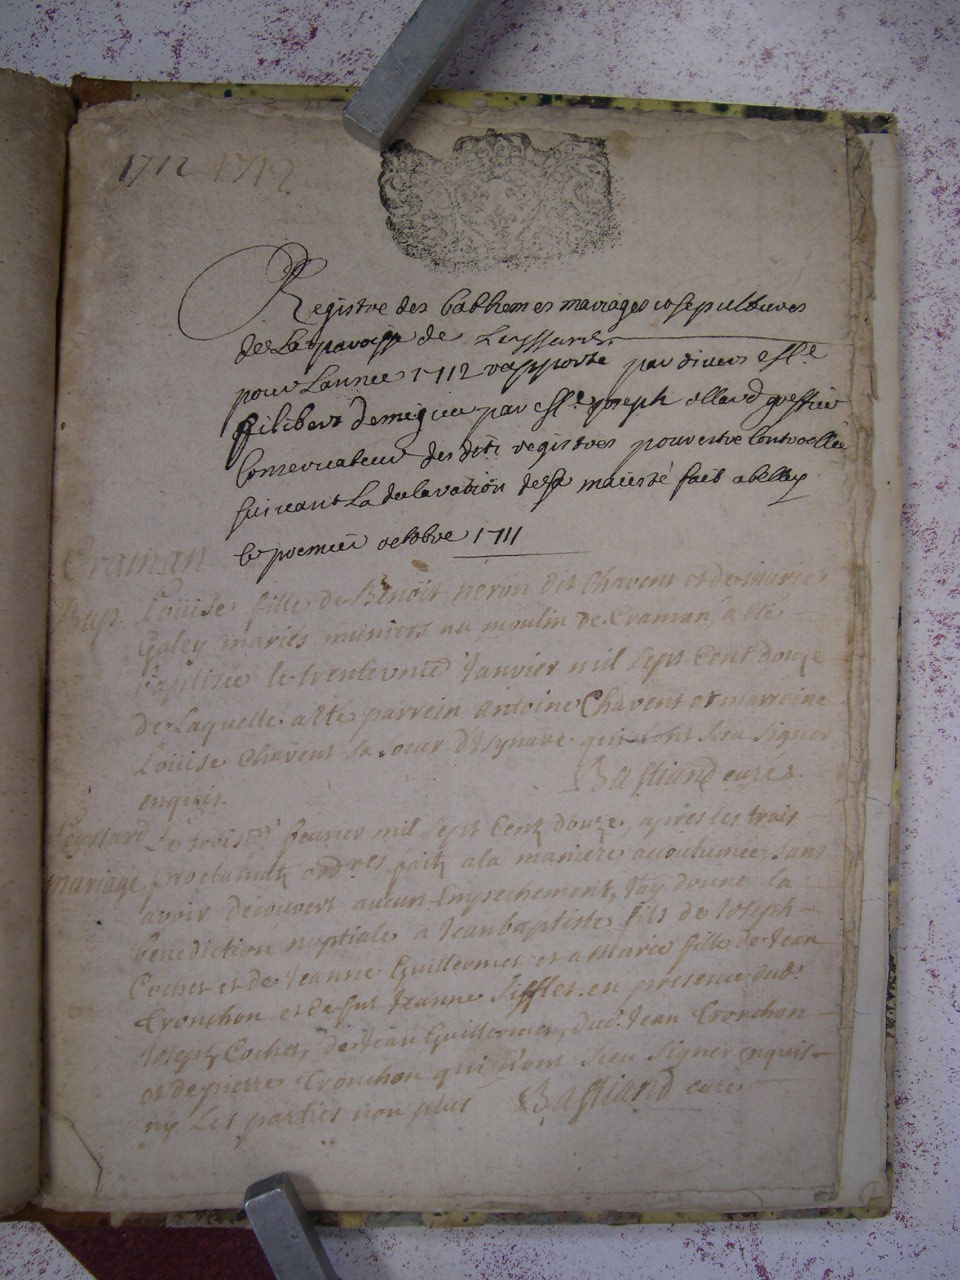 1712 1712
Registre des babtemes mariages et sepultures
de La paroisse de Leyssard
pour Lannee 1712 rapporte par sieur
filibert demegieu par joseph ollard greffier
Conservateur des dits registres pour estre Controollée
suivant La declaration de sa maiesté fait a belley
le premier octobre 1711
Craman
Bap. Loüise fille de Benoit neron dit Chavent et de marie
Galey mariés muniers au moulin de Craman, a été
baptisée le trente unie Janvier mil sept cent douze
de Laquelle a été parrein Antoine Chavent et marreine
Loüise Chavent sa soeur d'Isynave qui n'ont sceu signer
enquis. Bastiand curé
Leyssard Le troise fevrier mil sept Centz douze, apres les trois
Mariage proclamatz ordres faitz a la maniere accoutumée, sans
avoir découvert aucun Empechement, J'ay donné la
bénédiction nuptiale a Jean baptiste fils de Joseph
Cochet et de Jeanne Guillermet et a Marie fille de Jean
Cronchon et de fut Jeanne Siffler en presence dud.
Joseph Cochet, de Jean Guillermet, dud. Jean Cronchon
et de pierre Cronchon qui n'ont sceu signer enquis
ny Les parties non plus Bastiand curé